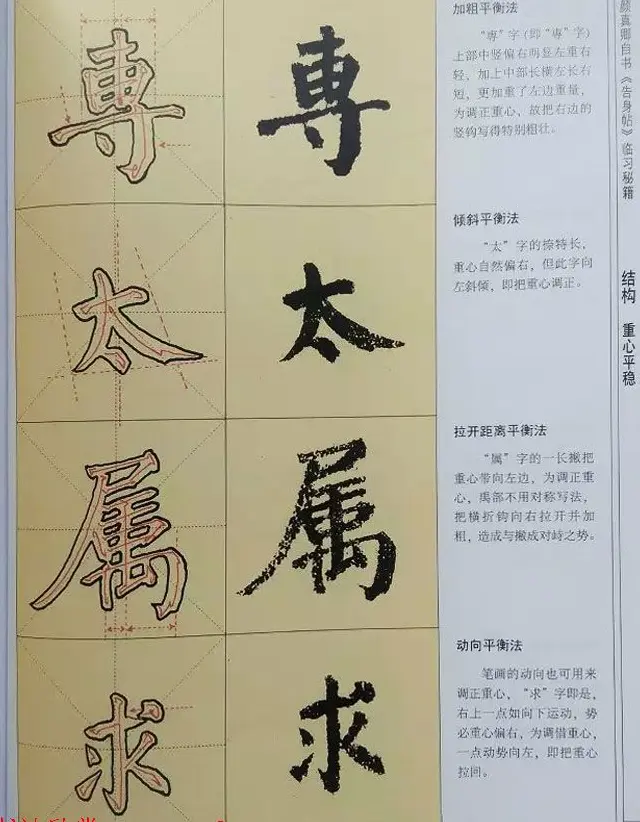 專
太
属
求
加粗平衡法
“専”字(即“專”字)
上部中竖偏右明显左重右
轻，加上中部长横左长右
短，更加重了左边重量，
为调正重心，故把右边的
竖钩写得特别粗壮。
倾斜平衡法
“太”字的捺特长，
重心自然偏右，但此字向
左斜倾，即把重心调正。
拉开距离平衡法
“属”字的一长撇把
重心带向左边，为调正重
心，禹部不用对称写法，
把横折钩向右拉开并加
粗，造成与撇成对峙之势。
动向平衡法
笔画的动向也可用来
调正重心，“求”字即是，
右上一点如向下运动，势
必重心偏右，为调借重心，
一点动势向左，即把重心
拉回。
颜真卿自书《告身帖》临习秘籍
结构 重心平稳